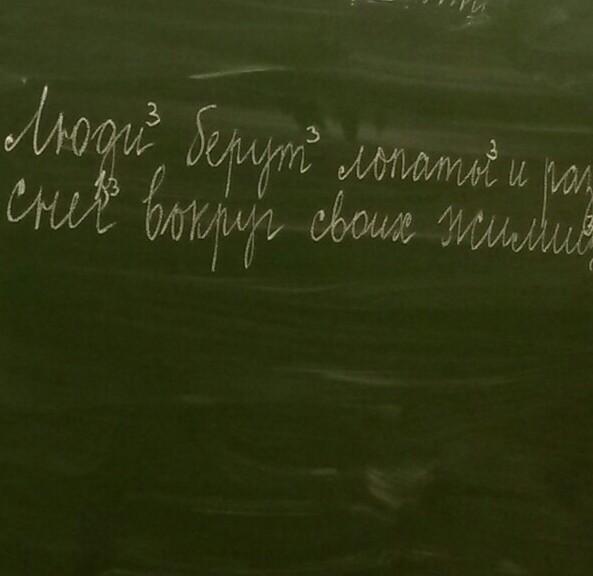 Люди³ берут³ лопаты³ и раз
снег³ вокруг своих жилищ